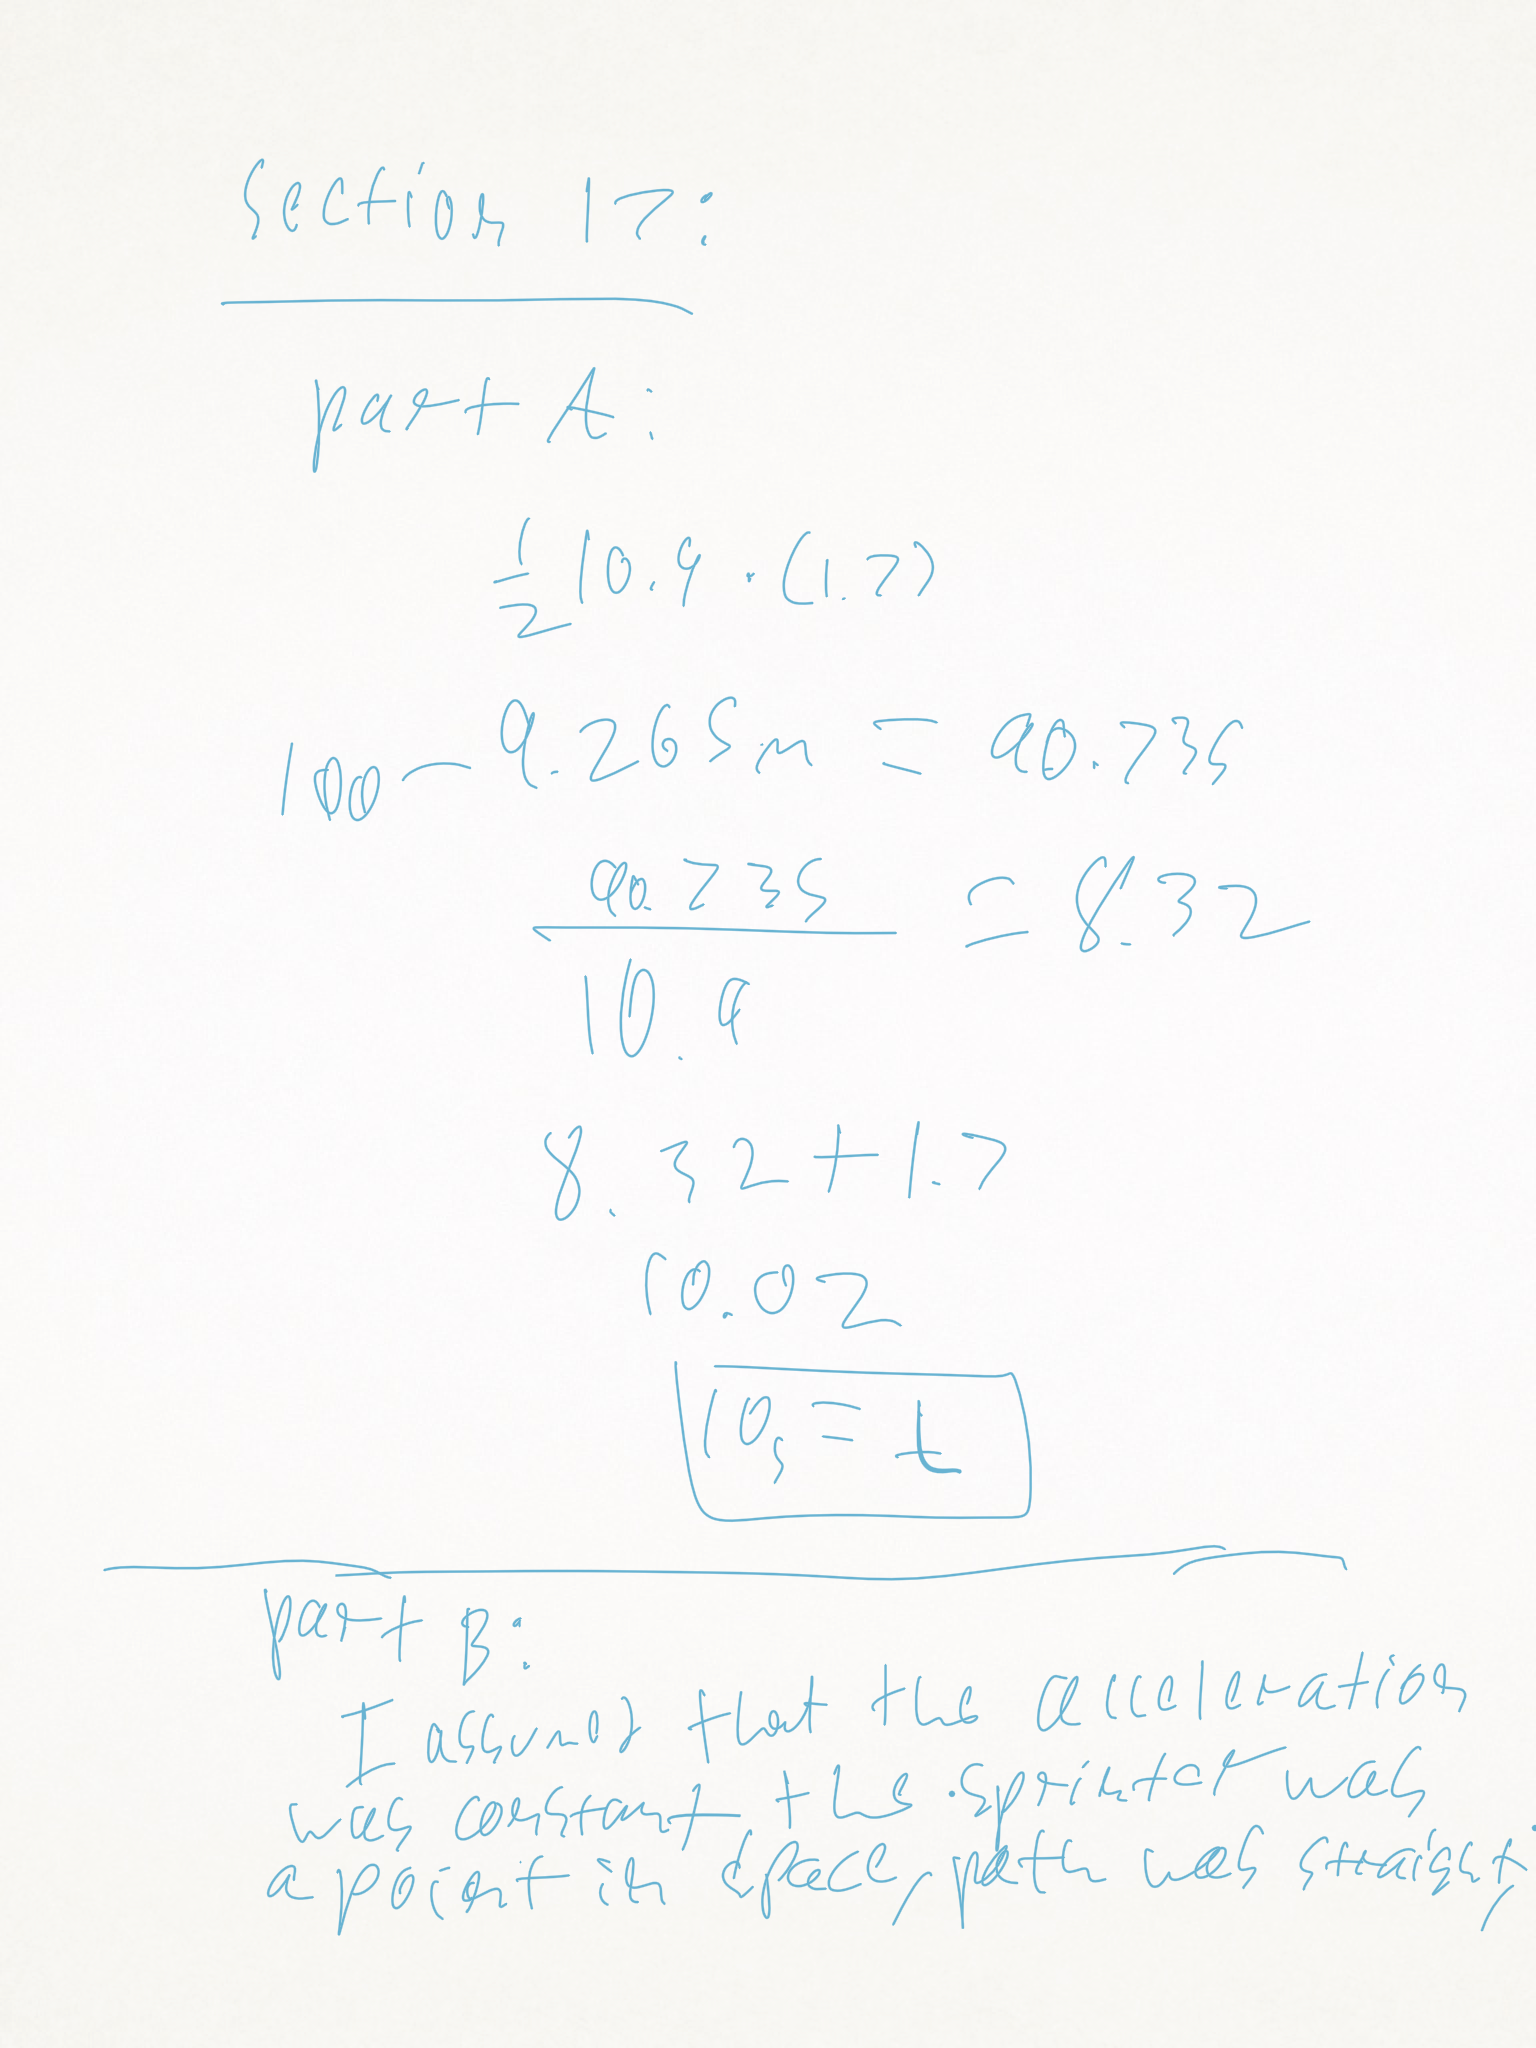 section 17:
part A:
1/2 10.9 · (1.7)
100 - 9.265m = 90.735
90.735 / 10.9 = 8.32
8.32 + 1.7
10.02
10s = t
part B:
I assumed that the acceleration
was constant the sprinter was
a point in space, path was straight,